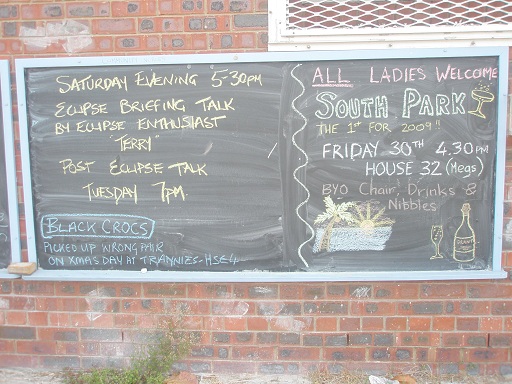 SATURDAY EVENING 5-30PM
ECLIPSE BRIEFING TALK
BY ECLIPSE ENTHUSIAST
"TERRY"
POST ECLIPSE TALK
TUESDAY 7PM.
BLACK CROCS
PICKED UP WRONG PAIR
ON XMAS DAY AT TRANNIES - HSE 4
ALL LADIES WELCOME
SOUTH PARK
THE 1st FOR 2009!!
FRIDAY 30TH 4.30PM
HOUSE 32 (Megs)
BYO Chair, Drinks &
Nibbles